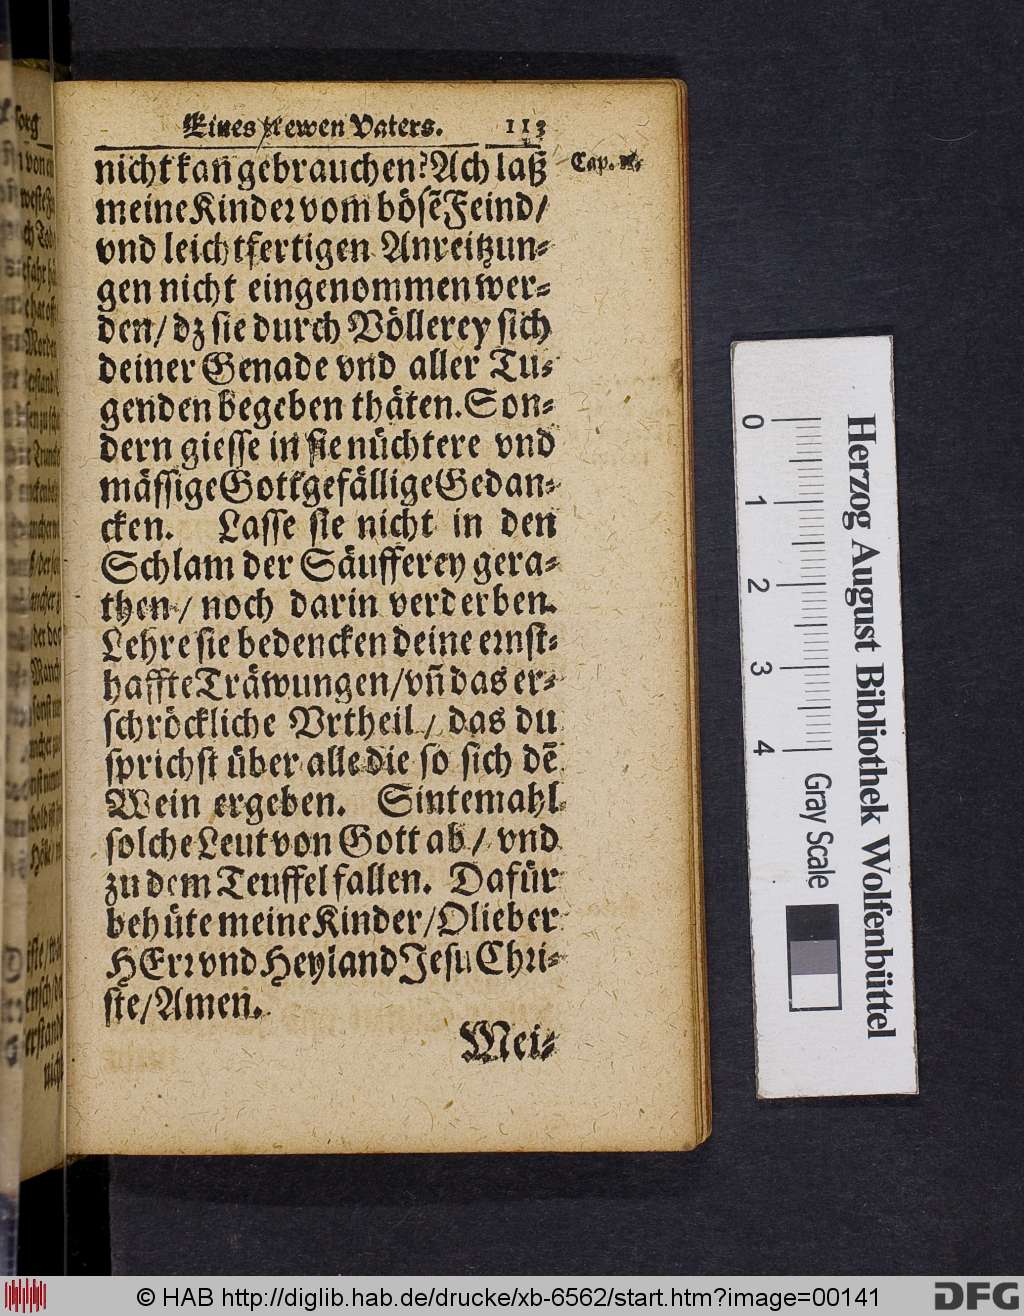 Eines trewen Vaters. 113
nicht kañ gebrauchen? Ach laß
Cap.
meine Kinder vom bösẽ Feind/
vnd leichtfertigen Anreitzun-
gen nicht eingenommen wer-
den/ dz sie durch Völlerey sich
deiner Genade vnd aller Tu-
genden begeben thäten. Son-
dern giesse in sie nüchtere vnd
mässige Gottgefällige Gedan-
cken. Lasse sie nicht in den
Schlam der Säufferey gera-
then/ noch darin verderben.
Lehre sie bedencken deine ernst-
haffte Träwungen/ vñ das er-
schröckliche Vrtheil/ das du
sprichst über alle die so sich dẽ
Wein ergeben. Sintemahl
solche Leut von Gott ab/ vnd
zu dem Teuffel fallen. Dafür
behüte meine Kinder/ O lieber
HErr vnd Heyland Jesu Chri-
ste/ Amen.
Mei-
Herzog August Bibliothek Wolfenbüttel
0 1 2 3 4
Gray Scale
© HAB http://diglib.hab.de/drucke/xb-6562/start.htm?image=00141
DFG